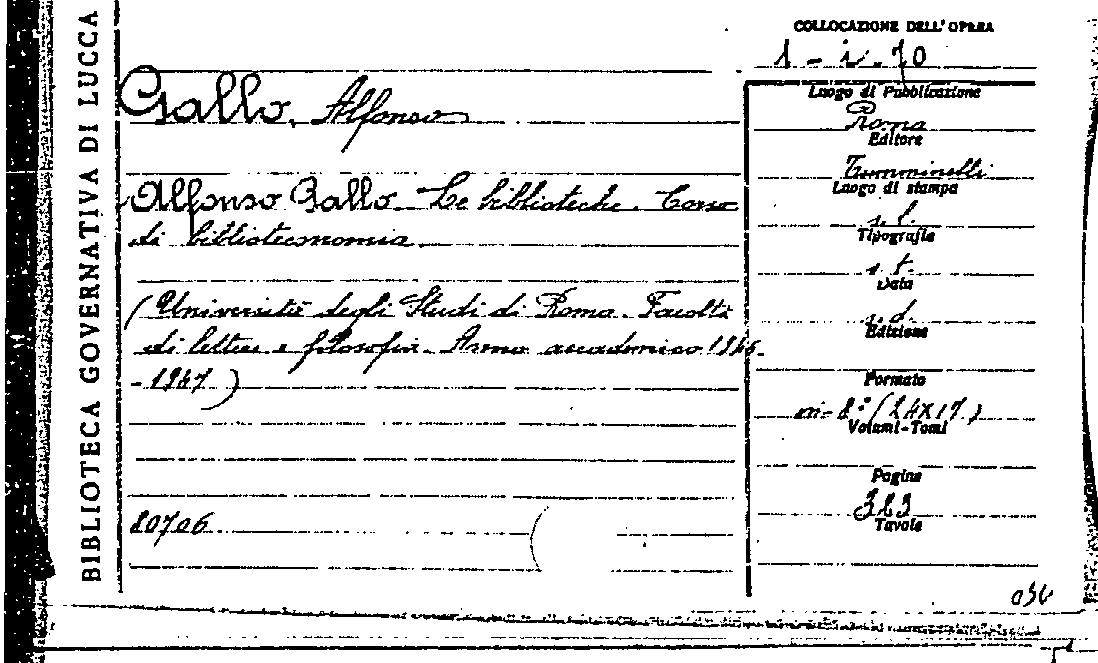 BIBLIOTECA GOVERNATIVA DI LUCCA
COLLOCAZIONE DELL'OPERA
1 - i. 70
Gallo, Alfonso
Alfonso Gallo. Le biblioteche. Corso
di biblioteconomia.
(Università degli Studi di Roma. Facoltà
di lettere e filosofia. Anno accademico 1946-
-1947)
80706
Luogo di Pubblicazione
Roma
Editore
Tumminelli
Luogo di stampa
s. l.
Tipografia
s. t.
Data
s. d.
Edizione
Formato
in-8° (24X17)
Volumi-Tomi
Pagine
323
Tavole